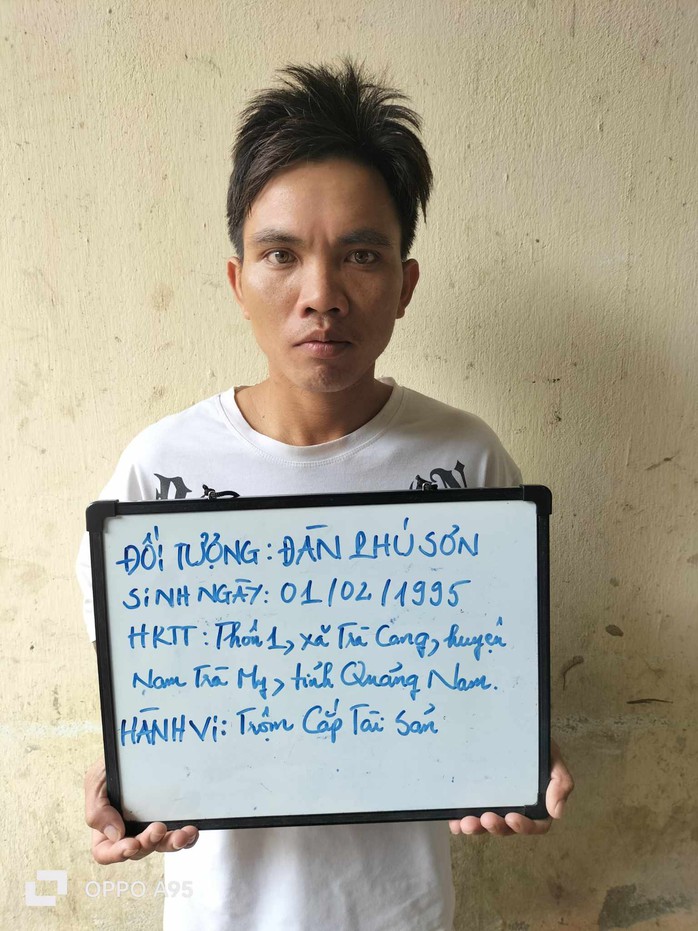 ĐỐI TƯỢNG: ĐÀN PHÚ SƠN
SINH NGÀY: 01/02/1995
HKTT: Thôn 1, xã Trà Cang, huyện
Nam Trà My, tỉnh Quảng Nam.
HÀNH Vi: Trộm Cắp Tài Sản
OPPO A95